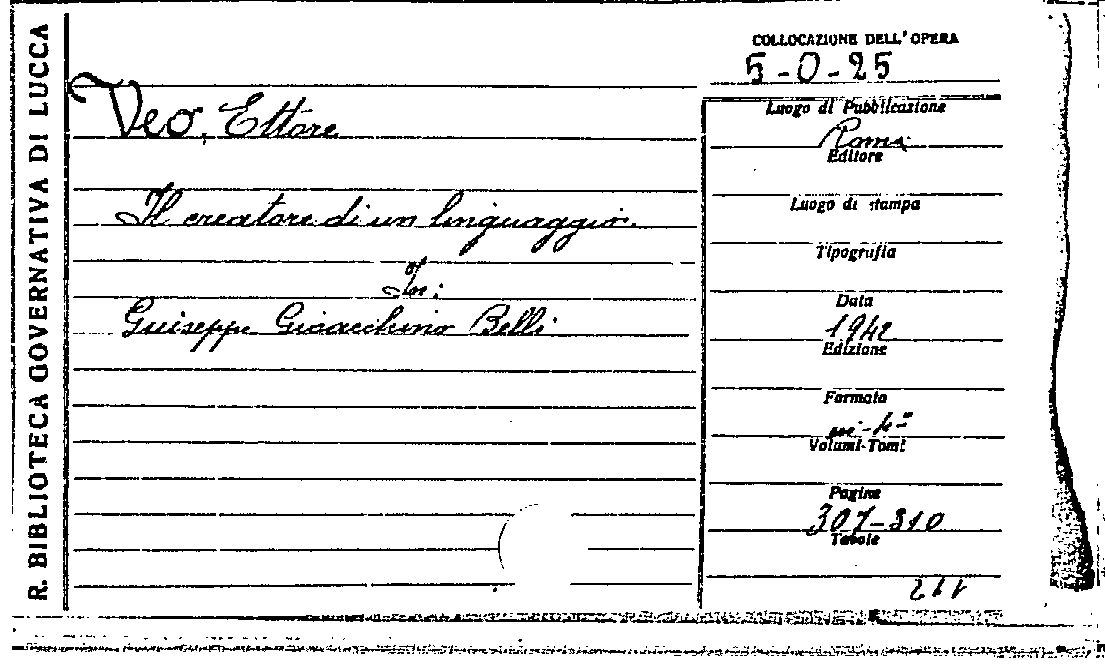 R. BIBLIOTECA GOVERNATIVA DI LUCCA
Veo, Ettore
Il creatore di un linguaggio.
In:
Guiseppe Gioacchino Belli
COLLOCAZIONE DELL'OPERA
5-0-25
Luogo di Pubblicazione
Roma
Editore
Luogo di stampa
Tipografia
Data
1942
Edizione
Formato
in-4°
Volumi-Tomi
Pagine
307-310
Tavole